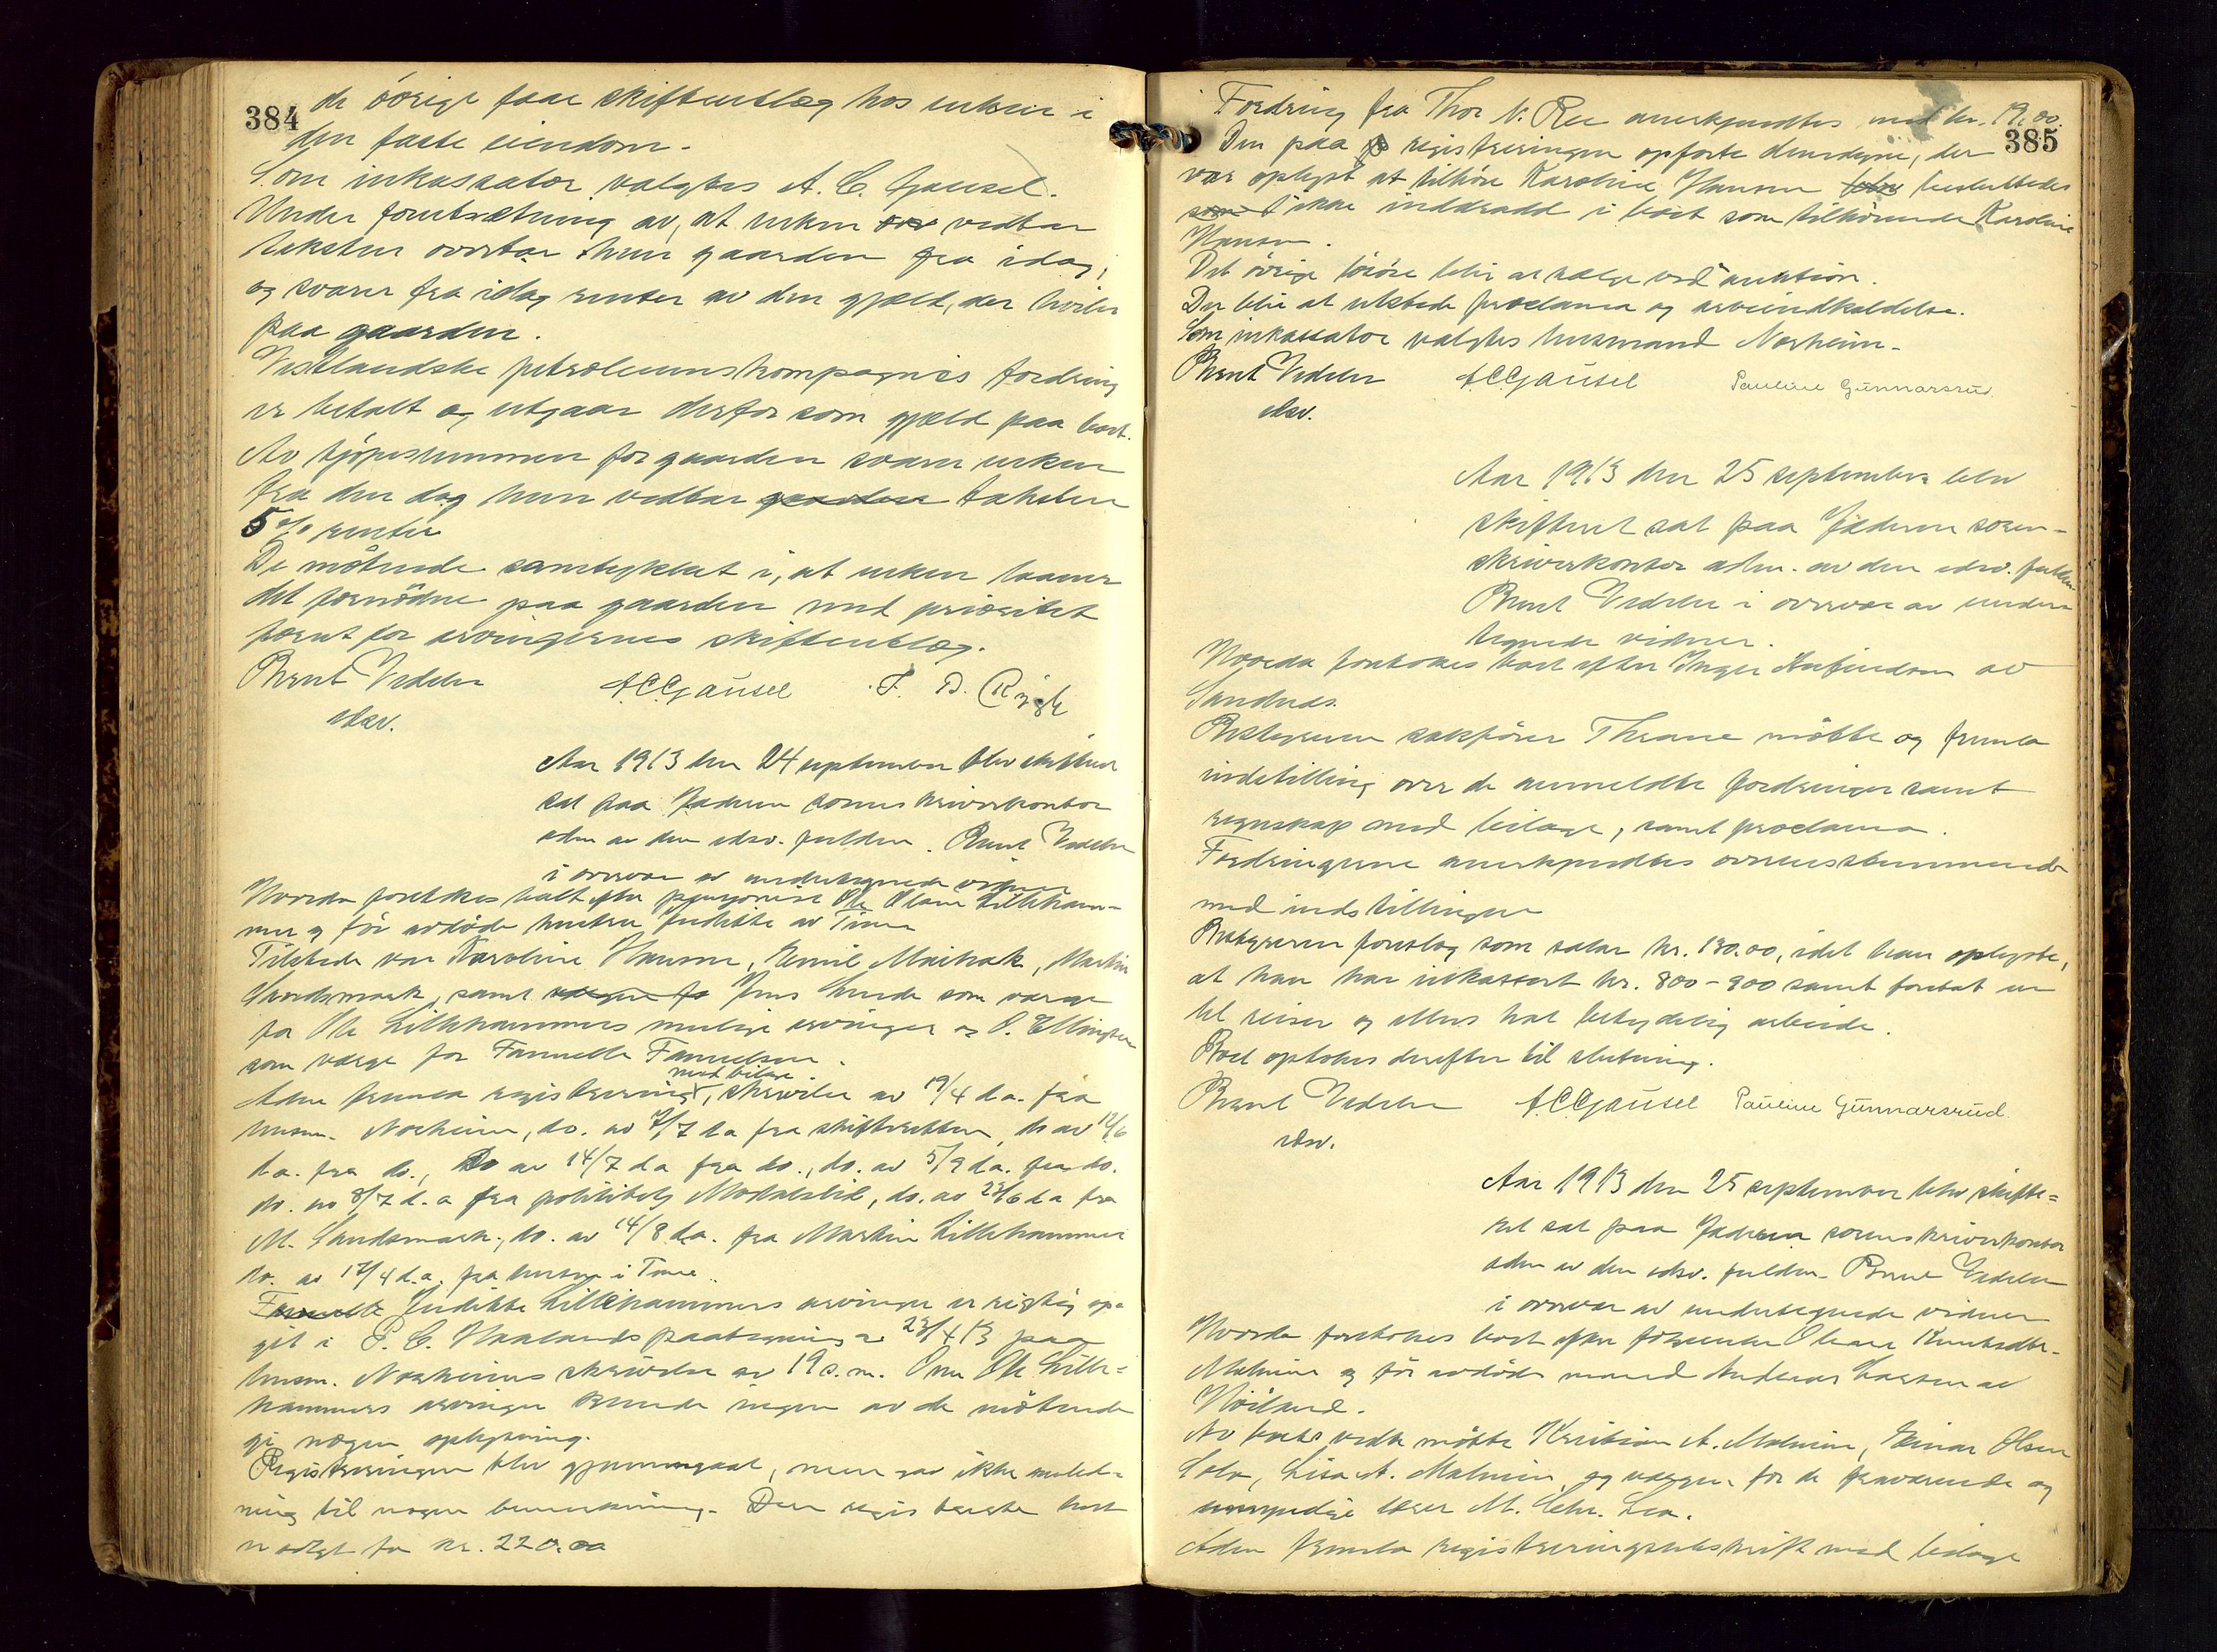 384
de övrige faar skifteutlæg hos enken i
den faste eiendom.
Som inkassator valgtes A. C. Gausel.
Under forutsætning av, at enken vedtar
taksten overtar hun gaarden fra idag,
og svarer fra idag renter av den gjæld, der hviler
paa gaarden.
Vestlandske petroleumskompagnis fordring
er betalt og utgaar derfor som gjæld paa boet.
Av kjöpesummen for gaarden svarer enken
fra den dag hun vedtar gaarden taksten
5 % renter
De mötende samtykket i, at enken laaner
det fornödne paa gaarden med prioritet
forut for arvingernes skifteutlæg.
Bernt Vedeler A.C. Gausel T. D.
edsv.
Aar 1913 den 24 september blev skifteret
sat paa Jæderen sorenskriverkontor
adm av den edsv. fuldm. Bernt Vedeler
i overvær av undertegnede vidner
Hvorda foretokes boet efter Ole Olsen Lilleham-
mer og för avdöde hustru Juditte av Time
Tilstede var Karoline Hansen, Emil Maihak, Martin
Sandsmark, samt Jens Lunde som værge
for Ole Lillehammers mulige arvinger og O. Ellingsen
som værge for Fannuelle Fannuelsen.
Adm fremla registrering med bilage, skrivelse av 19/4 d.a. fra
lensm. Norheim, do. av 7/7 d.a fra skifteretten, do av 12/6
d.a. fra do., Do av 14/7 d.a fra do., do. av 5/9 d.a. fra do.
do. av 8/7 d.a fra politibetj Modalsli, do. av 23/6 d.a fra
M. Sandsmark, do. av 14/8 d.a. fra Martin Lillehammer
do. av 17/4 d.a. fra i Time.
Juditte Lillehammers arvinger er rigtig op-
git i P. C. Haalands paategning av 23/4 13 paa
lensm. Norheims skrivelse av 19 s.m. Om Ole Lille-
hammers arvinger kunde ingen av de mötende
gi nogen oplysning.
Registreringen blev gjennemgaat, men gav ikke anled-
ning til nogen bemerkning. Den registrerte hest
er solgt for kr. 220.00
385
Fordring fra Thor N. Ree anerkjendtes med kr. 19.00.
Den paa registreringen opförte dundyne, der
var oplyst at tilhöre Karoline Hansen besluttedes
ikke inddradd i boet som tilhörende Karoline
Hansen.
Det övrige lösöre blir at sælge ved auktion.
Der blir at utstede proclama og arveindkaldelse.
Som inkassator valgtes lensmand Norheim.
Bernt Vedeler A.C. Gausel Pauline Gunnarsrud
edsv.
Aar 1913 den 25 september blev
skifteret sat paa Jæderen soren-
skriverkontor adm. av den edsv. fuldm.
Bernt Vedeler i overvær av under-
tegnede vidner.
Hvorda foretokes boet efter Inger Aufindsen av
Sandnes.
Bestyreren sakförer Thrane mötte og fremla
indstilling over de anmeldte fordringer samt
regnskap med bilage, samt proclama.
Fordringerne anerkjendtes overensstemmende
med indstillingen
Bestyreren foreslog som salær kr. 130.00, idet han oplyste,
at han har inkassert kr. 800 - 900 samt foretat en
del reiser og ellers hat betydelig arbeide.
Boet optokes derefter til slutning.
Bernt Vedeler A.C. Gausel Pauline Gunnarsrud.
edsv.
Aar 1913 den 25 september blev skifte-
ret sat paa Jæderen sorenskriverkontor
adm av den edsv. fuldm. Bernt Vedeler
i overvær av undertegnede vidner
Hvorda foretokes boet efter Olene Knutsdtr.
Malmin og för avdöde mand Andreas Larsen av
Höiland.
Av boets vedk mötte Kristian A. Malmin, Einar Olsen
Sola, Lisa A. Malmin og værgen for de fraværende og
umyndige lærer M. Chr. Lea.
Adm fremla registreringsutskrift med bilage